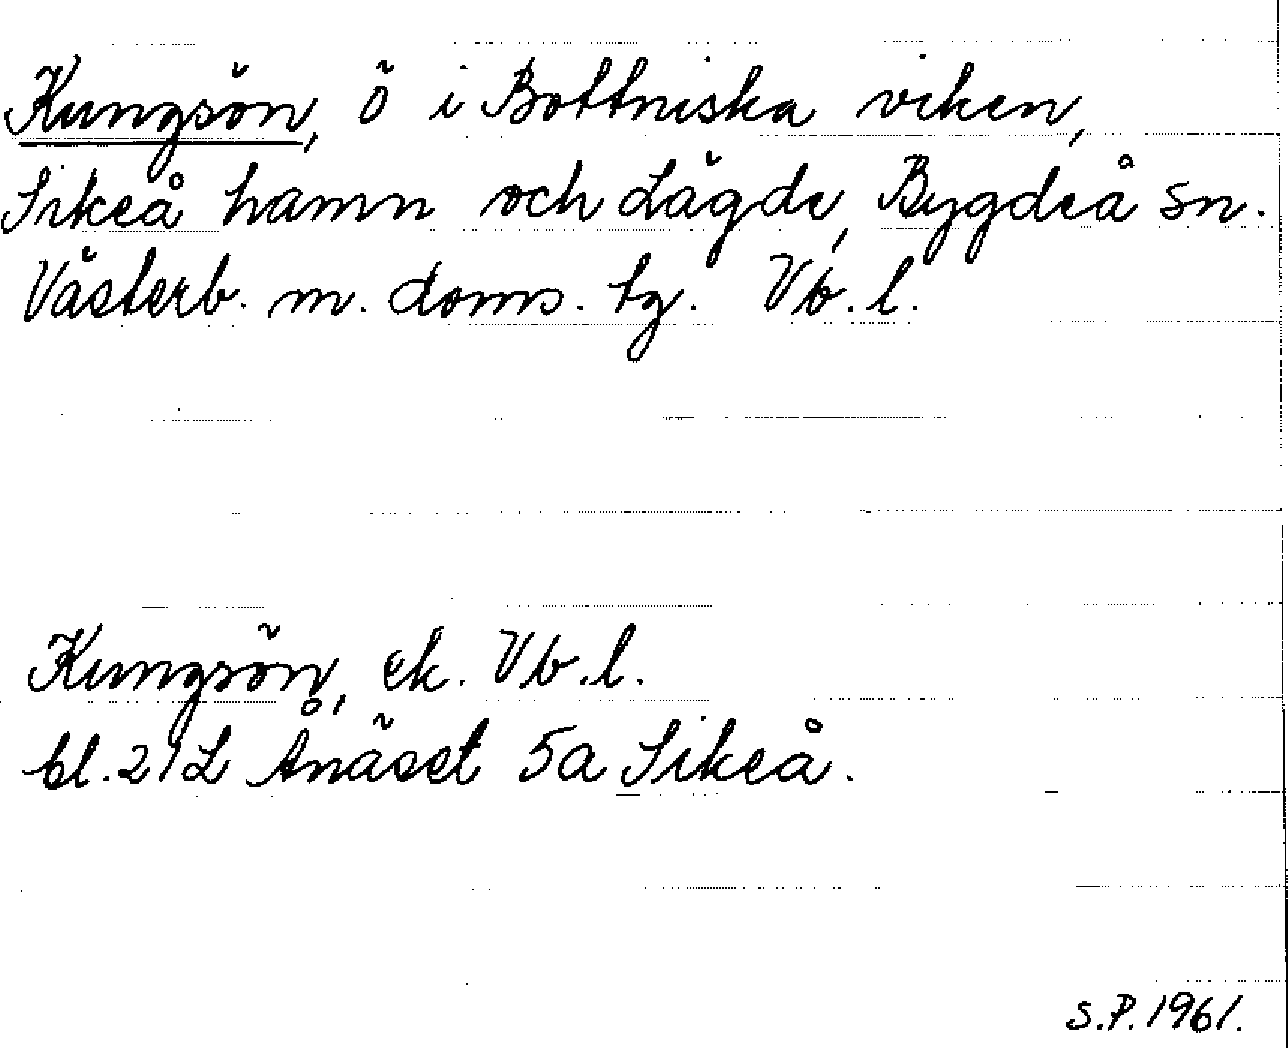 Kungsön, ö i Bottniska viken,
Sikeå hamn och Lägde, Bygdeå sn.
Västerb. m. doms. tg. Vb. l.
Kungsön, ek. Vb. l.
bl. 21L Ånäset 5a Sikeå.
S.P. 1961.